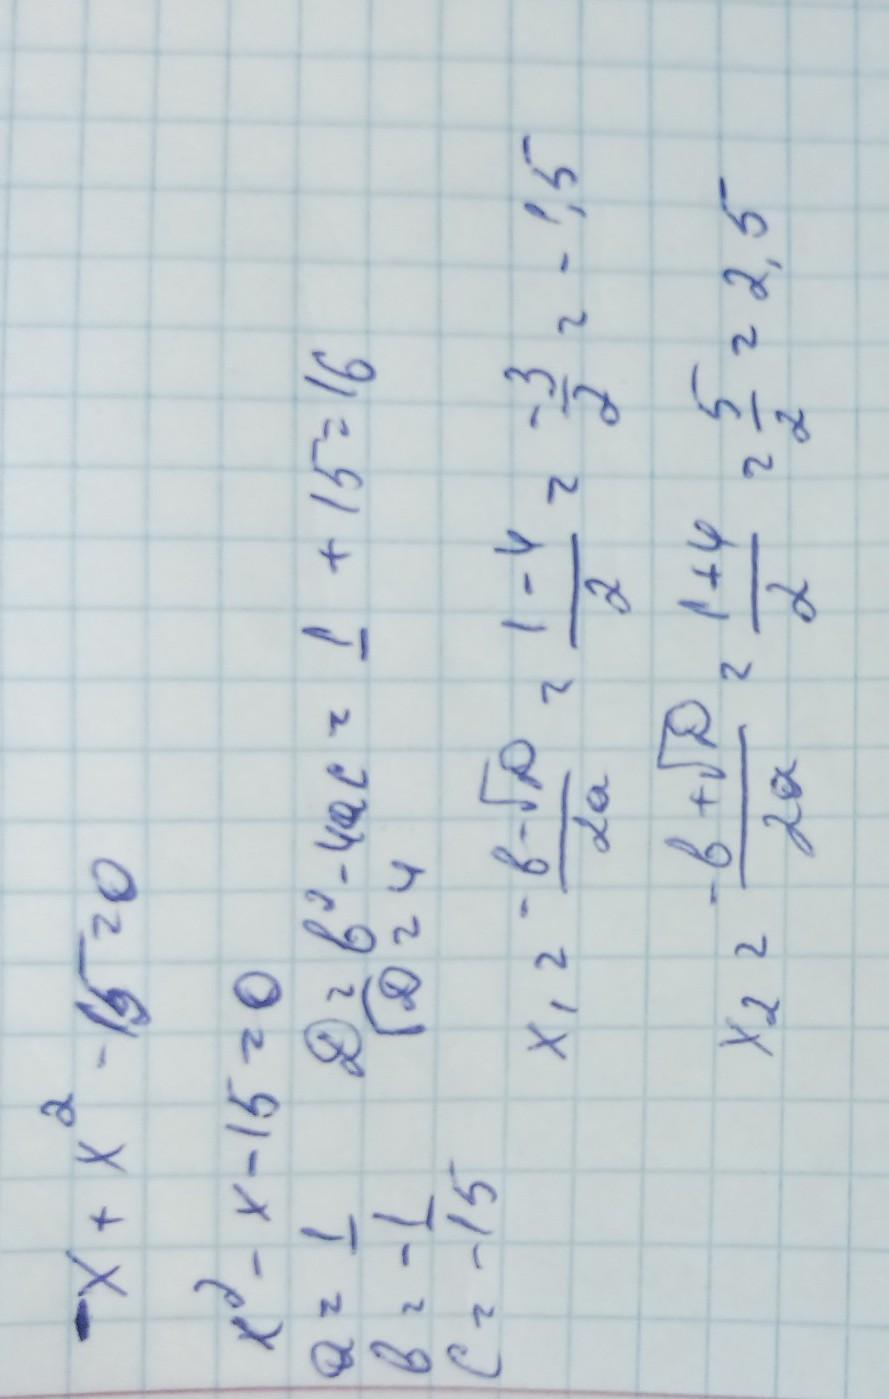 -x + x² - 15 = 0
x² - x - 15 = 0
a = 1
D = b² - 4ac = 1 + 15 = 16
b = -1
√D = 4
c = -15
x₁ = (-b - √D)/2a = (1 - 4)/2 = -3/2 = -1,5
x₂ = (-b + √D)/2a = (1 + 4)/2 = 5/2 = 2,5